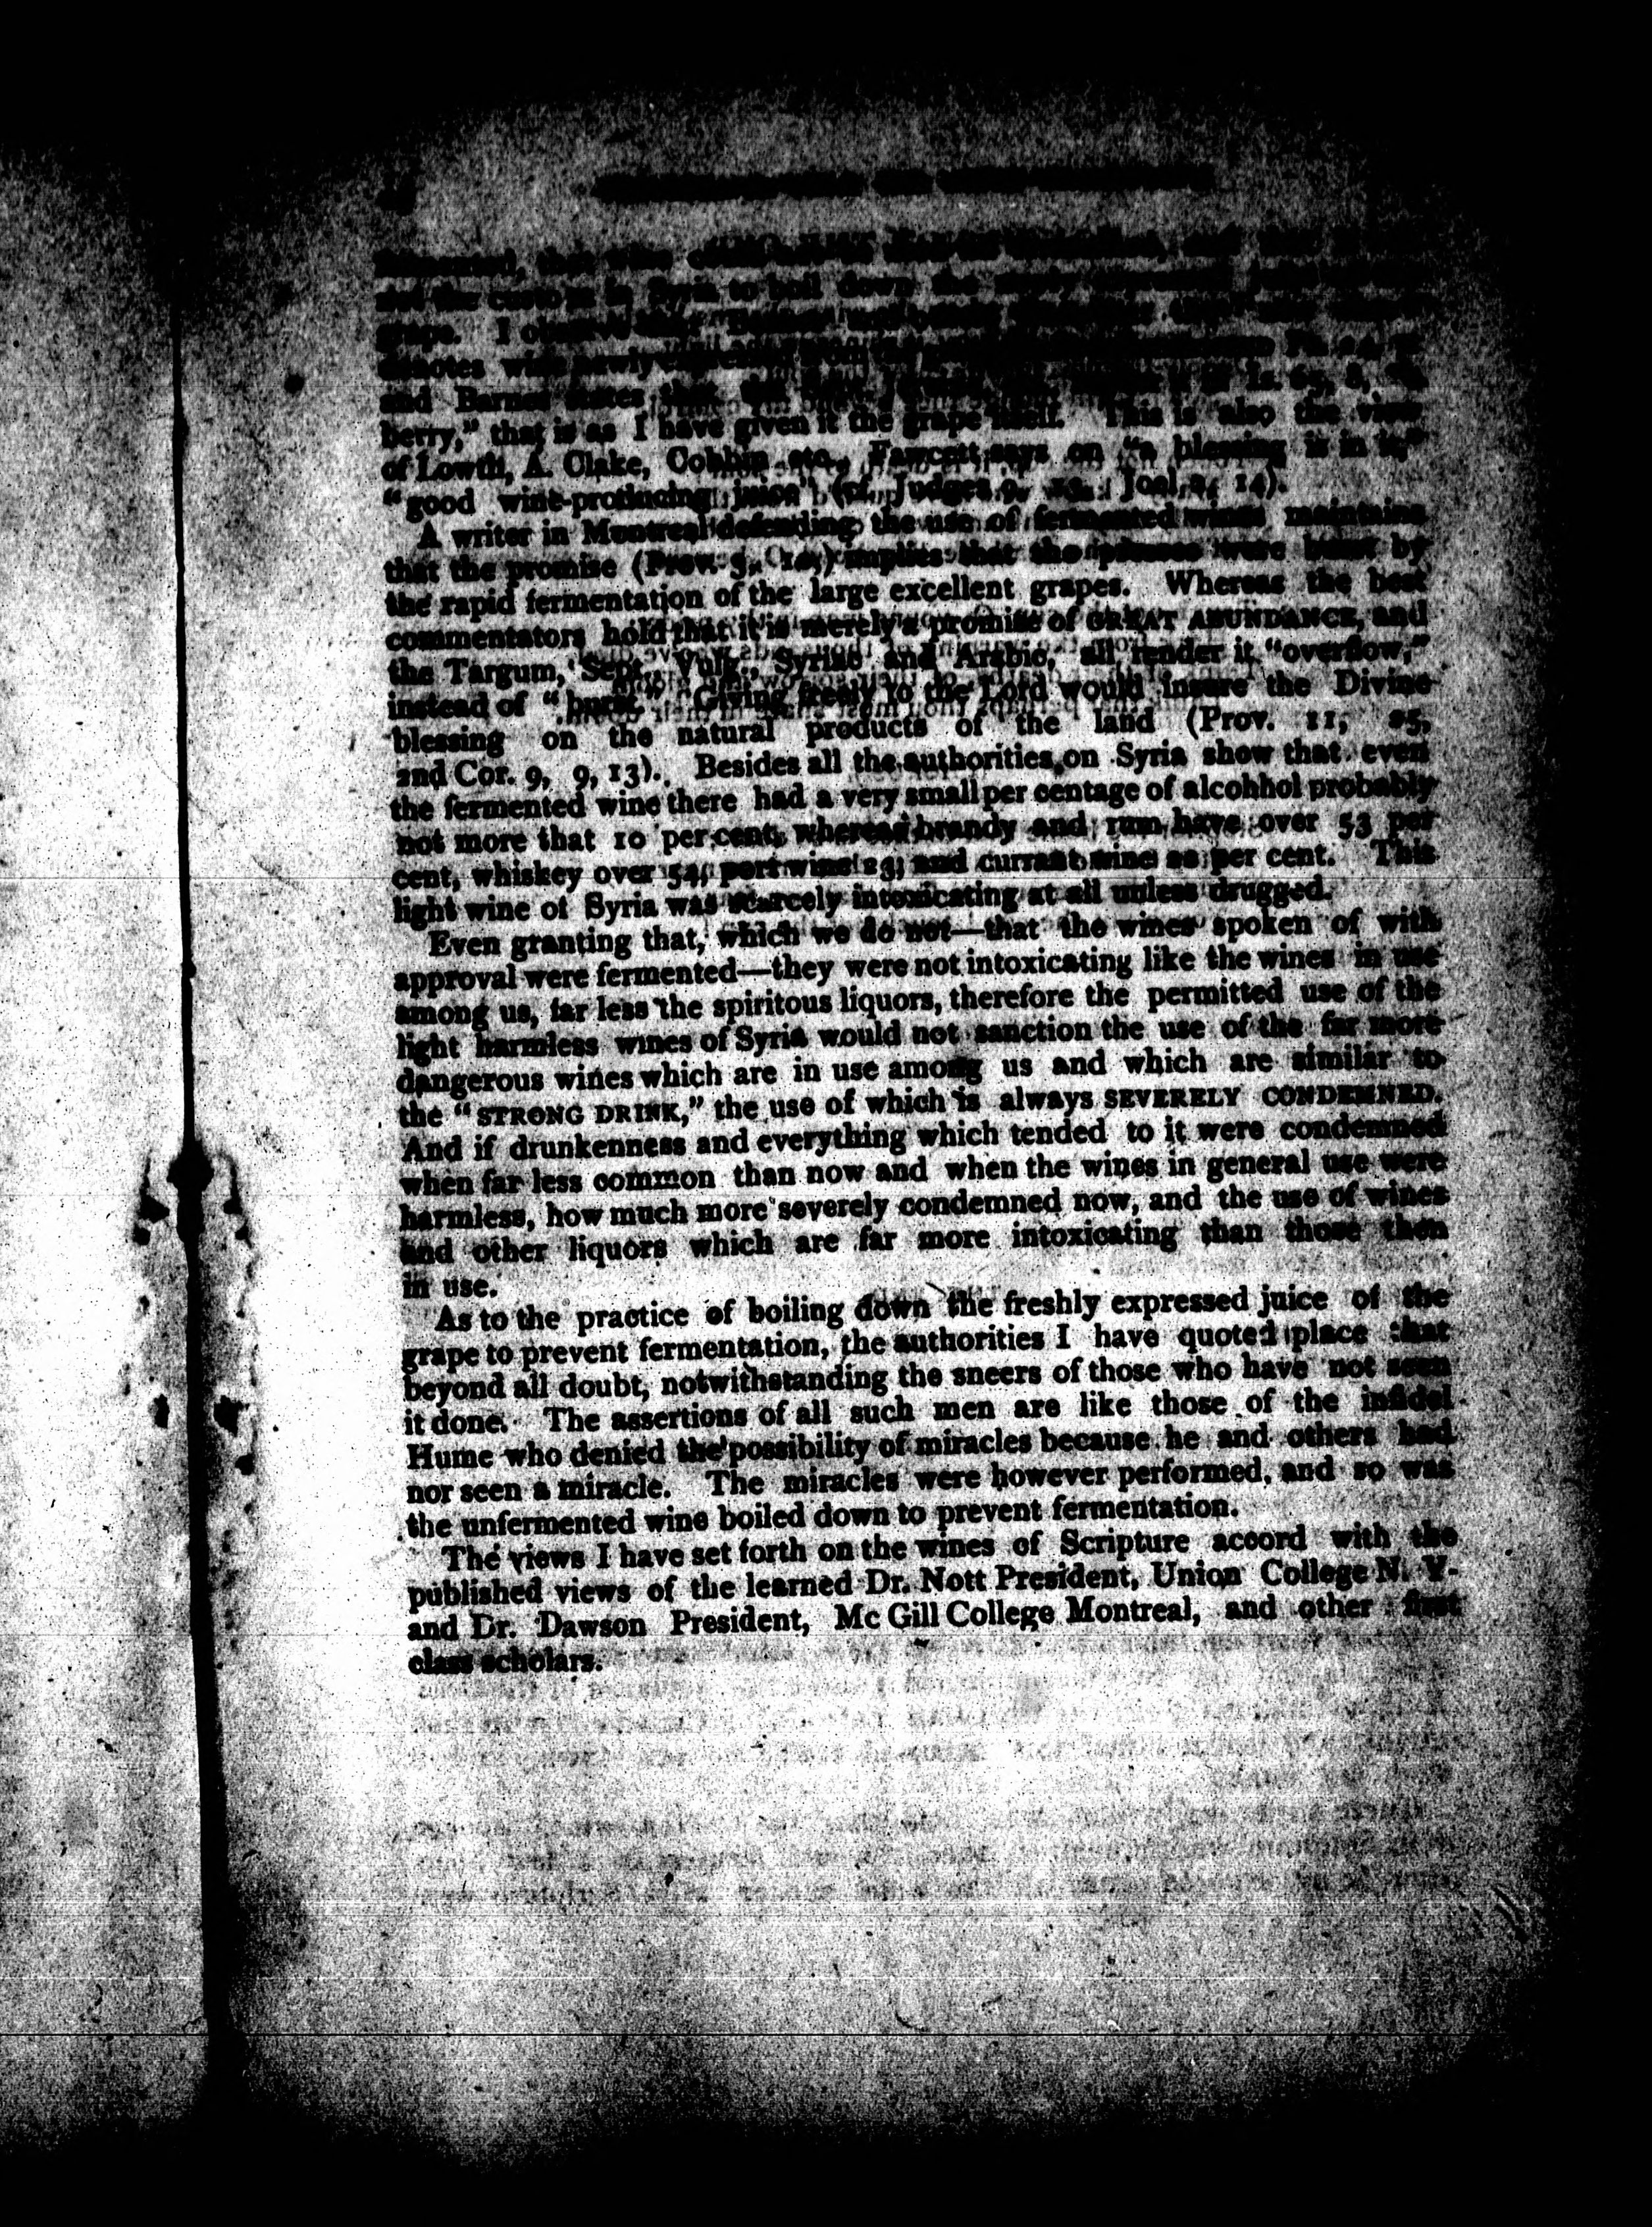 and the custom in Syria to boil down the
grape. I
denotes wine newly expressed from the
and Barnes states that the Is. 65, 8,
berry," that is as I have given it the grape itself. This is also the view
of Lowth, A. Clake, Cobbin etc., Fawcett says on "a blessing is in it,"
"good wine-producing juice" (cf. Judges 9, Joel 2, 14).
A writer in Montreal defending the use of fermented wines maintains
that the promise (Prov. 3, 10,) implies that the presses were burst by
the rapid fermentation of the large excellent grapes. Whereas the best
commentators hold that it is merely a promise of GREAT ABUNDANCE, and
the Targum, Sept., Vulg., Syriac and Arabic, all render it "overflow,"
instead of "burst." Giving freely to the Lord would insure the Divine
blessing on the natural products of the land (Prov. 11, 25,
2nd Cor. 9, 9, 13). Besides all the authorities on Syria show that even
the fermented wine there had a very small per centage of alcohhol probably
not more that 10 per cent, whereas brandy and rum have over 53 per
cent, whiskey over 54, port wine 23, and currant wine 20 per cent. This
light wine of Syria was scarcely intoxicating at all unless drugged.
Even granting that, which we do not—that the wines spoken of with
approval were fermented—they were not intoxicating like the wines in use
among us, far less the spiritous liquors, therefore the permitted use of the
light harmless wines of Syria would not sanction the use of the far more
dangerous wines which are in use among us and which are similar to
the "STRONG DRINK," the use of which is always SEVERELY CONDEMNED.
And if drunkenness and everything which tended to it were condemned
when far less common than now and when the wines in general use were
harmless, how much more severely condemned now, and the use of wines
and other liquors which are far more intoxicating than those then
in use.
As to the practice of boiling down the freshly expressed juice of the
grape to prevent fermentation, the authorities I have quoted place that
beyond all doubt, notwithstanding the sneers of those who have not seen
it done. The assertions of all such men are like those of the infidel
Hume who denied the possibility of miracles because he and others had
nor seen a miracle. The miracles were however performed, and so was
the unfermented wine boiled down to prevent fermentation.
The views I have set forth on the wines of Scripture accord with the
published views of the learned Dr. Nott President, Union College N. Y.
and Dr. Dawson President, Mc Gill College Montreal, and other first
class scholars.